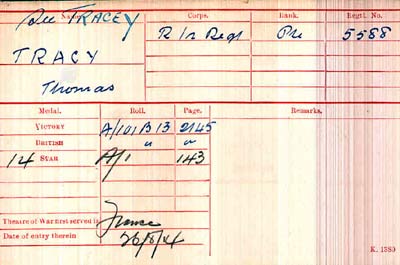 See TRACEY
Name. Corps. Rank. Regtl. No.
R Ir Regt Pte 5588
TRACY
Thomas
Medal. Roll. Page. Remarks.
VICTORY A/101 B 13 2145
BRITISH " "
14 STAR A/1 143
Theatre of War first served in France
Date of entry therein 26/8/14
K. 1380